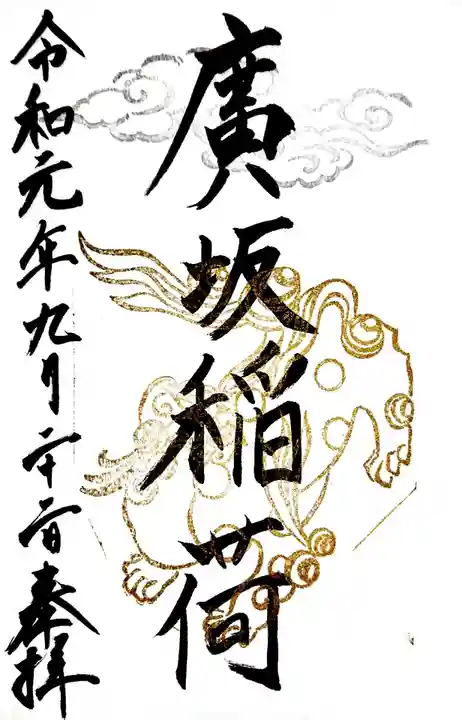 廣坂稲荷
令和元年九月二十二日奉拝